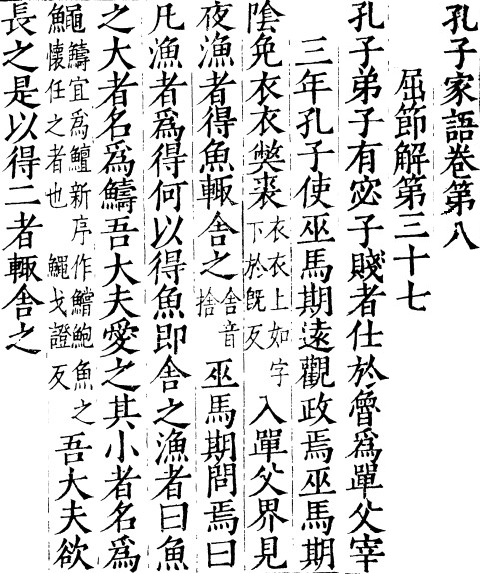 孔子家語卷第八
屈節解第三十七
孔子弟子有宓子賤者仕於魯爲單父宰
三年孔子使巫馬期遠觀政焉巫馬期
陰免衣衣獘裘衣衣上如字下於旣反入單父界見
夜漁者得魚輙舎之舎音捨巫馬期問焉曰
凡漁者爲得何以得魚即舎之漁者曰魚
之大者名爲鱄吾大夫愛之其小者名爲
鱦鱄宜爲鱣新序作鱛鮑魚之懷任之者也鱦戈證反吾大夫欲
長之是以得二者輙舎之